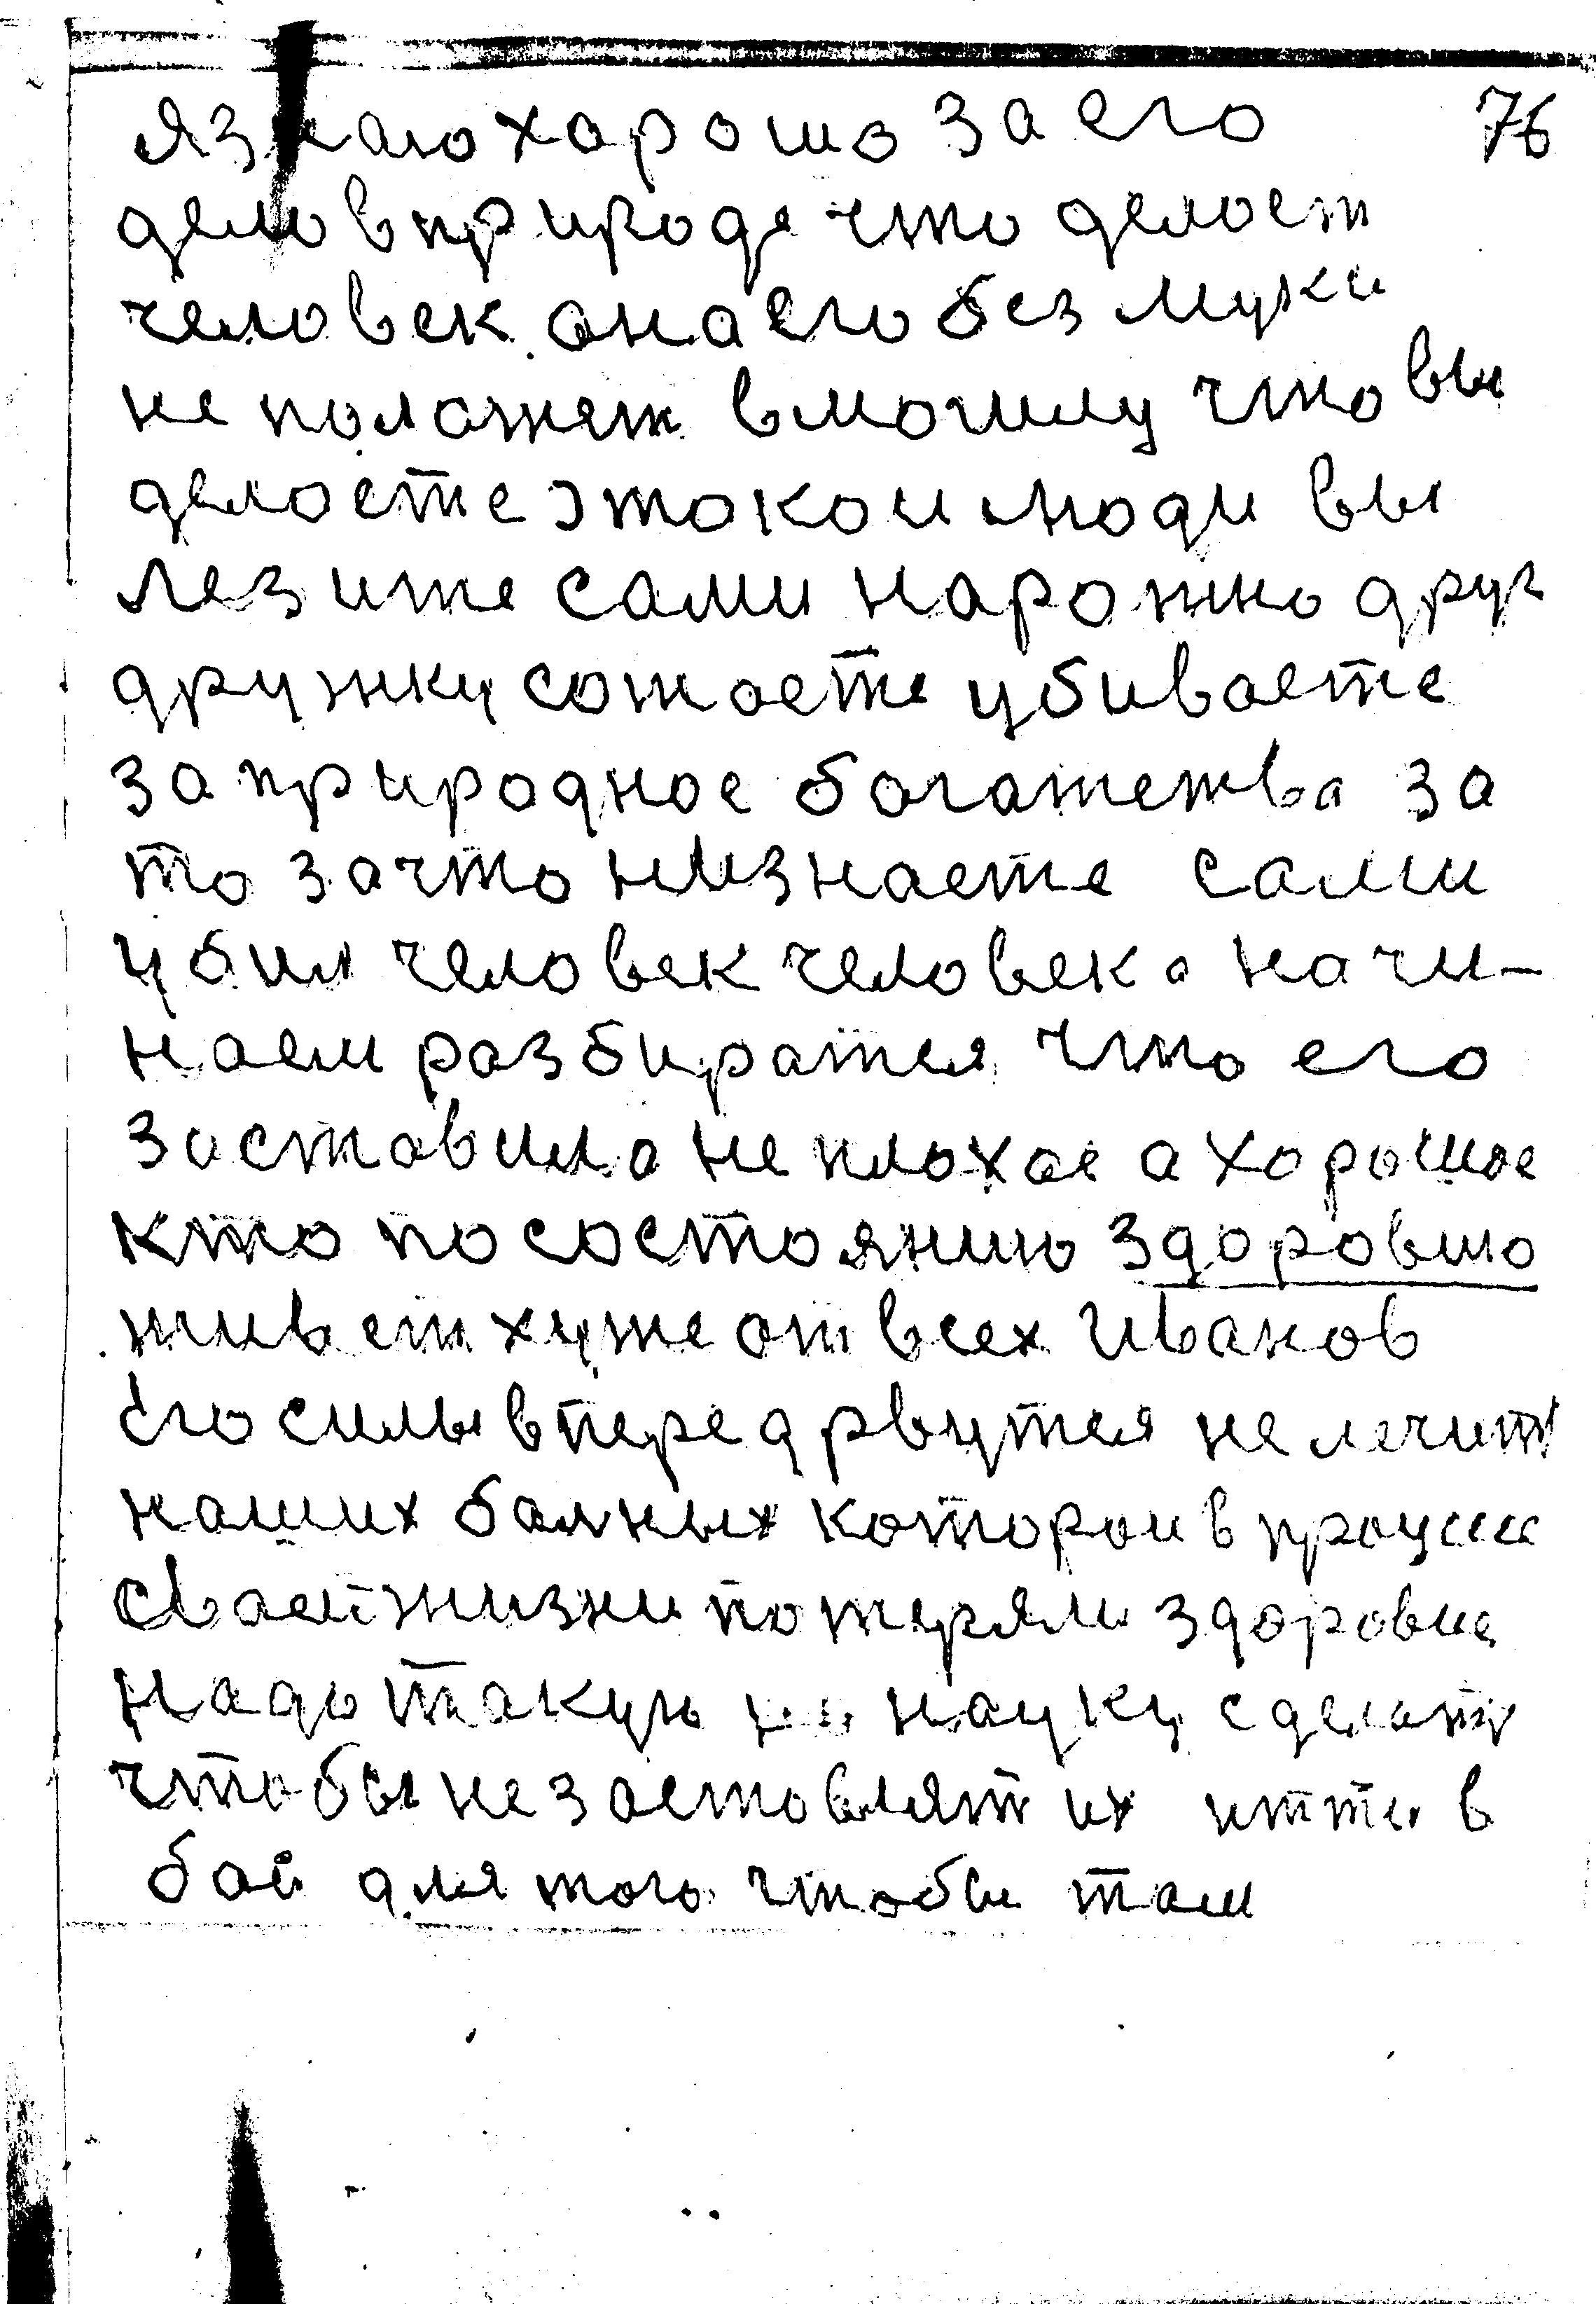 я знаю хорошо за его 76
дело в природе что делоет
человек она его без муки
не положет в могилу что вы
делоете э токои люди вы
лезите сами нарожно друг
дружку сожоете убиваете
за природное богатства за
то за что низнаете сами
убил человек человека начи-
наем разбиратся что его
заставила не плохое а хорошое
кто по состоянию здоровию
живет хуже от всех Иванов
его силы вперед рвутся не лечит
наших балных которои в проции
сваей жизни потеряли здоровие
надо такую науку сделат
чтобы не застовлят их итти в
бой для того чтобы там